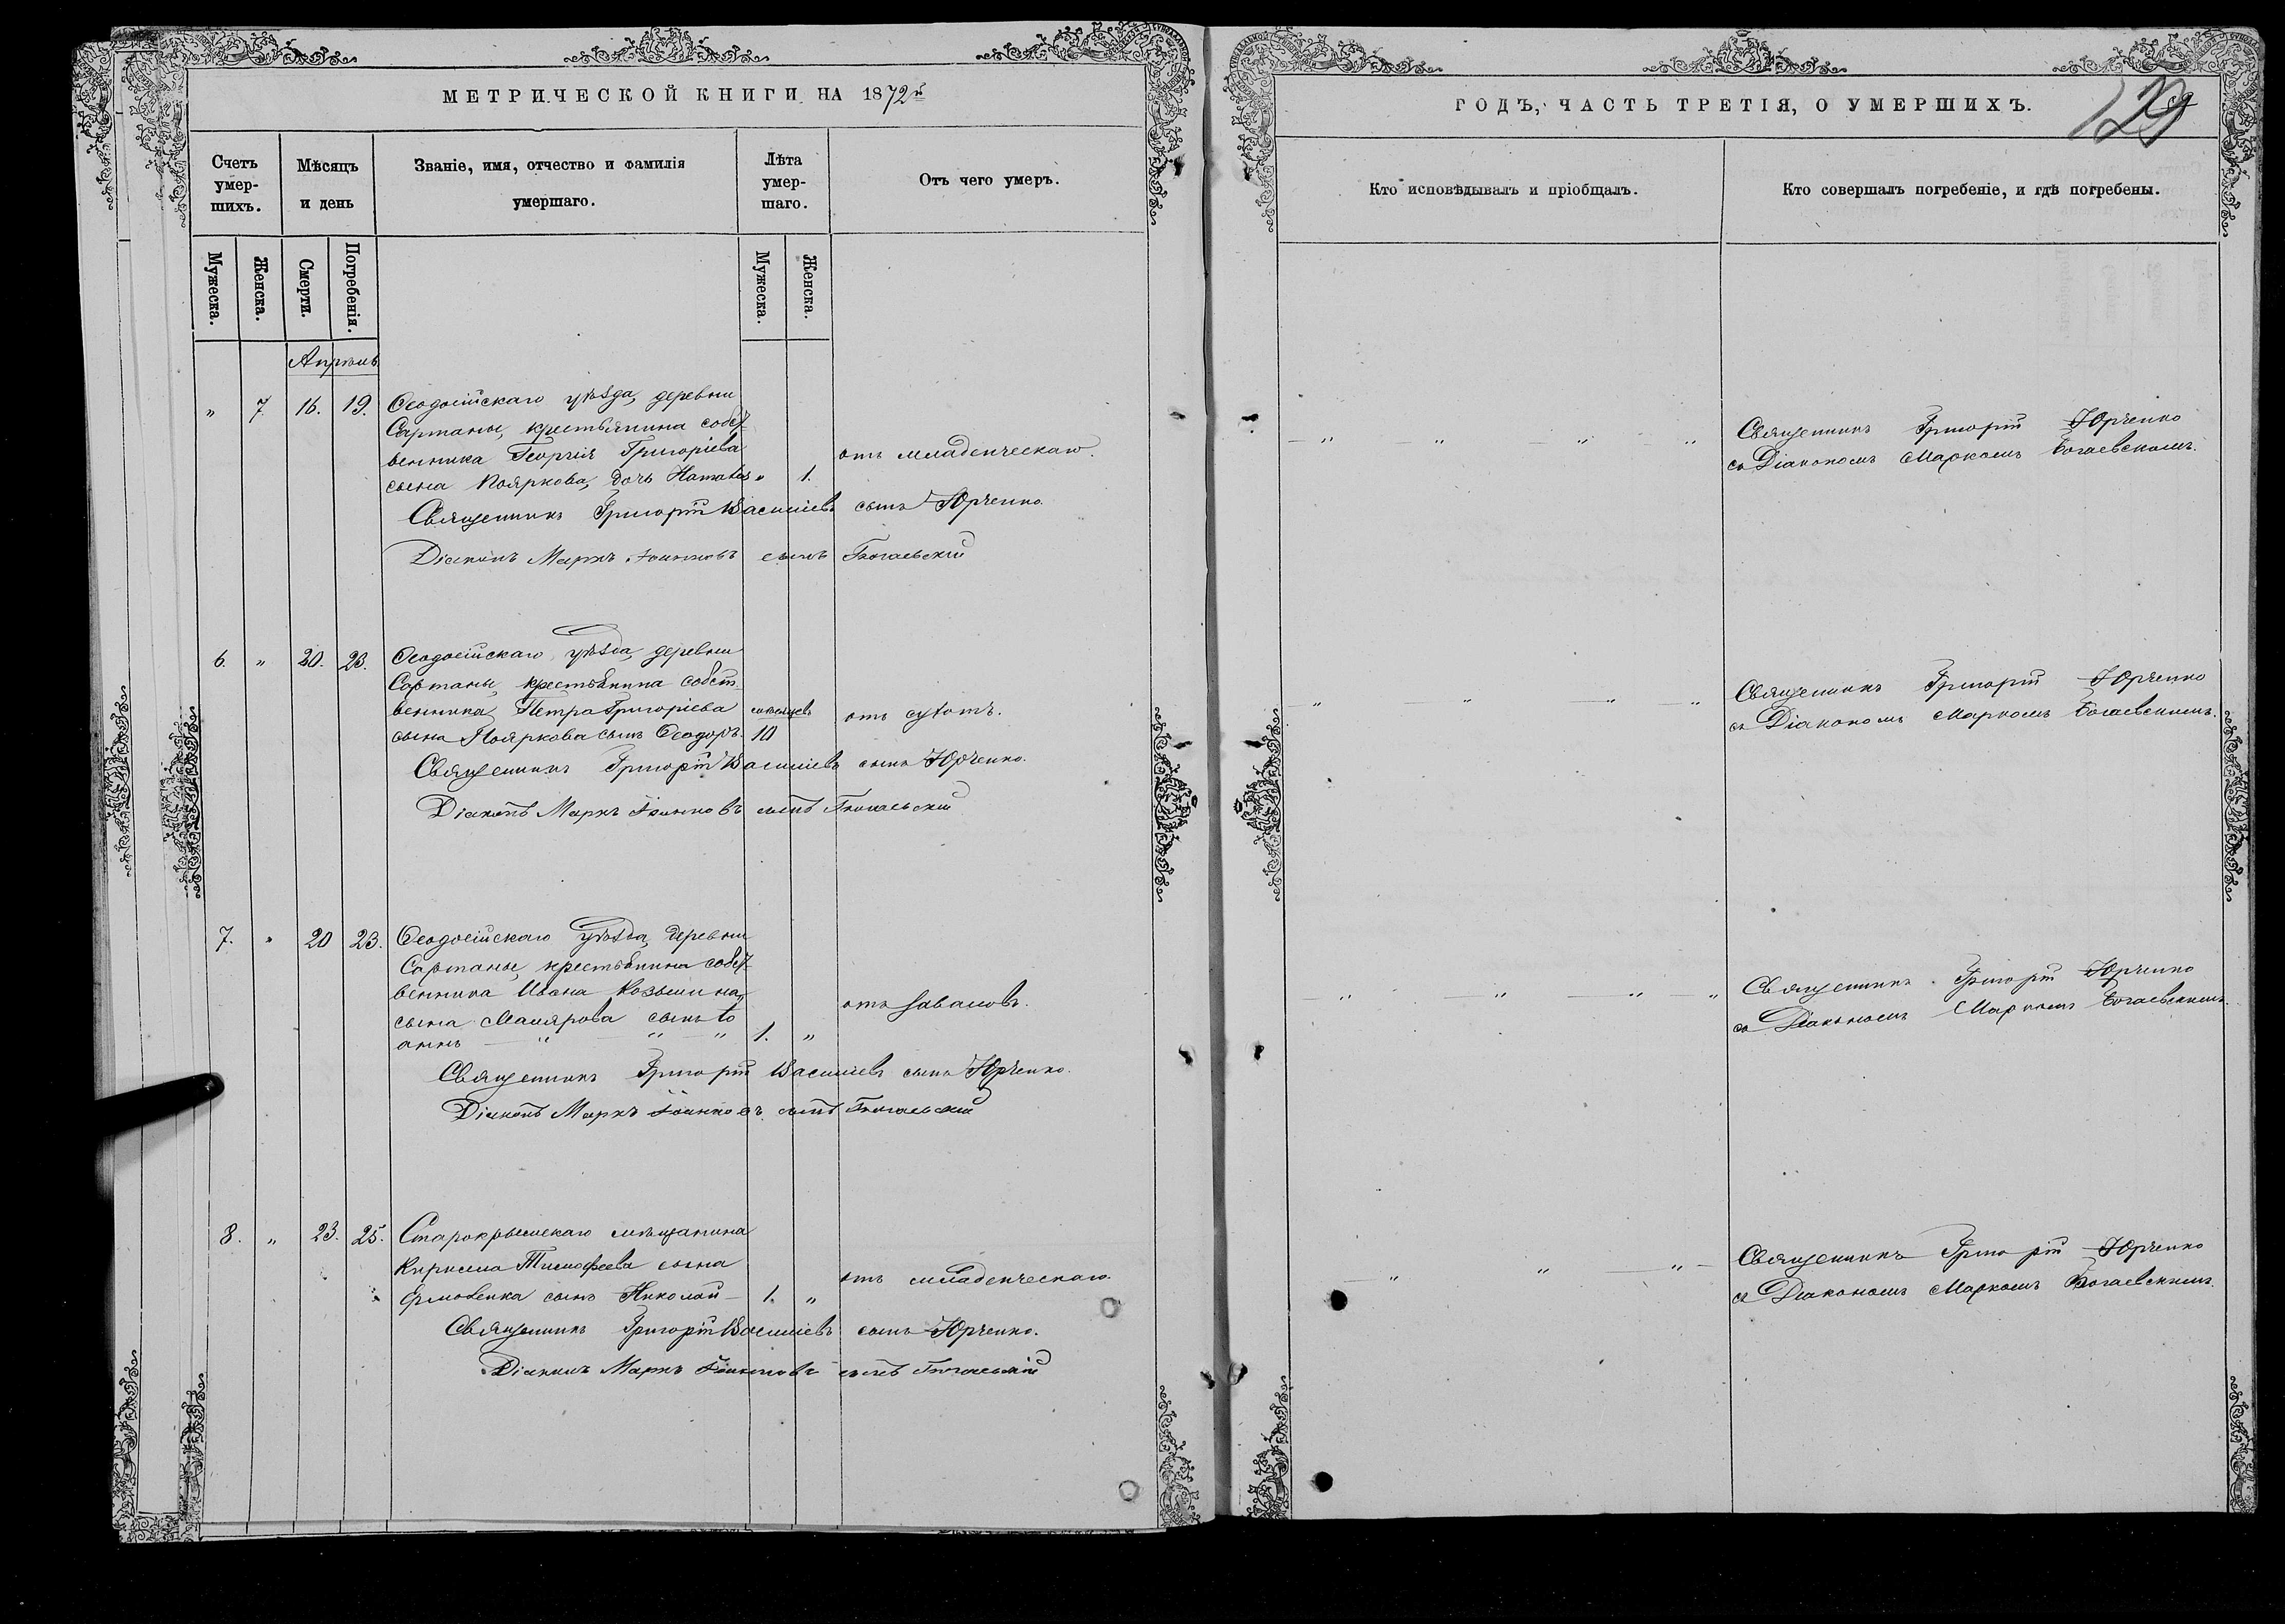 МЕТРИЧЕСКОЙ КНИГИ НА 1872й
Счетъ умер-шихъ.
Мѣсяцъ и день
Званіе, имя, отчество и фамилія умершаго.
Лѣта умер-шаго.
Отъ чего умеръ.
Мужеска.
Женска.
Смерти.
Погребенія.
Мужеска.
Женска.
Апрѣль
" 7 16. 19. Ѳеодосійскаго уѣзда, деревни
Сартаны, крестьянина собст
венника Георгія Григоріева
отъ младенческаго.
сына Пояркова, дочь Наталія " 1.
Священникъ Григорій Василіевъ сынъ Юрченко.
Діаконъ Маркъ Іоанновъ сынъ Богаевскій
6. " 20. 23. Ѳеодосійскаго уѣзда, деревни
Сартаны, крестьянина собст
венника Петра Григоріева мѣсяцевъ отъ
сына Пояркова сынъ Ѳеодоръ. 10
Священникъ Григорій Василіевъ сынъ Юрченко.
Діаконъ Маркъ Іоанновъ сынъ Богаевскій
7. " 20 23. Ѳеодосійскаго уѣзда, деревни
Сартаны, крестьянина собст
венника Ивана Козьмина,
отъ
сына Малярова сынъ Іо
аннъ " " " 1. "
Священникъ Григорій Василіевъ сынъ Юрченко.
Діаконъ Маркъ Іоанновъ сынъ Богаевскій
8. " 23. 25. Старокрымскаго мѣщанина
Кирилла Тимофеева сына
отъ младенческаго.
Ермоленка сынъ Николай 1. "
Священникъ Григорій Василіевъ сынъ Юрченко.
Діаконъ Маркъ Іоанновъ сынъ Богаевскій
ГОДЪ, ЧАСТЬ ТРЕТІЯ, О УМЕРШИХЪ.
129
Кто исповѣдывалъ и пріобщалъ.
Кто совершалъ погребеніе, и гдѣ погребены.
" " " " Священникъ Григорій Юрченко
съ Діакономъ Маркомъ Богаевскимъ.
" " " " Священникъ Григорій Юрченко
съ Діакономъ Маркомъ Богаевскимъ.
" " " " Священникъ Григорій Юрченко
съ Діакономъ Маркомъ Богаевскимъ.
" " " Священникъ Григорій Юрченко
съ Діакономъ Маркомъ Богаевскимъ.